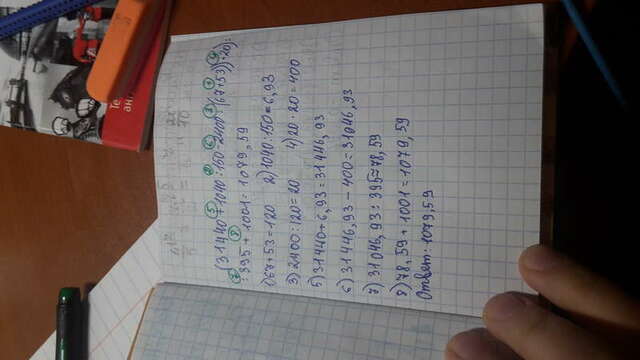 Те
анг
(31440+1040:150-2400:(67+53)·20):
:395+1001=1079,59
1) 67+53=120 2) 1040:150≈6,93
3) 2400:120=20 4) 20·20=400
5) 31440+6,93=31446,93
6) 31446,93-400=31046,93
7) 31046,93:395≈78,59
8) 78,59+1001=1079,59
Ответ: 1079,59